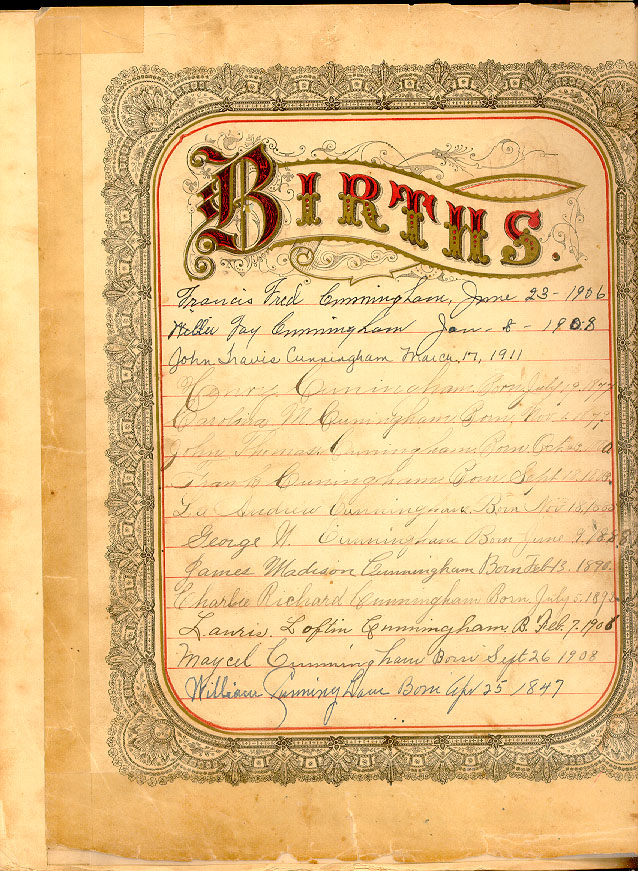 BIRTHS.
Francis Fred Cunningham, June 23 - 1906
Fay Cunningham Jan - 8 - 1908
John Travis Cunningham March, 17, 1911
Henry Cuningham Born July
Carolina M Cuningham Born Nov
John Thomas Cunningham Born Oct
Frank Cuningham Born Sept
Andrew Cunningham Born Nov 10,
George W Cunningham Born June 9, 1888
James Madison Cunningham Born Feb 13, 1890
Charlie Richard Cunningham Born July 5, 1898
Lauris. Loflin Cunningham, B. Feb. 7. 1906
Maycel Cunningham Born Sept 26 1908
William Cunningham Born Apr 25 1847